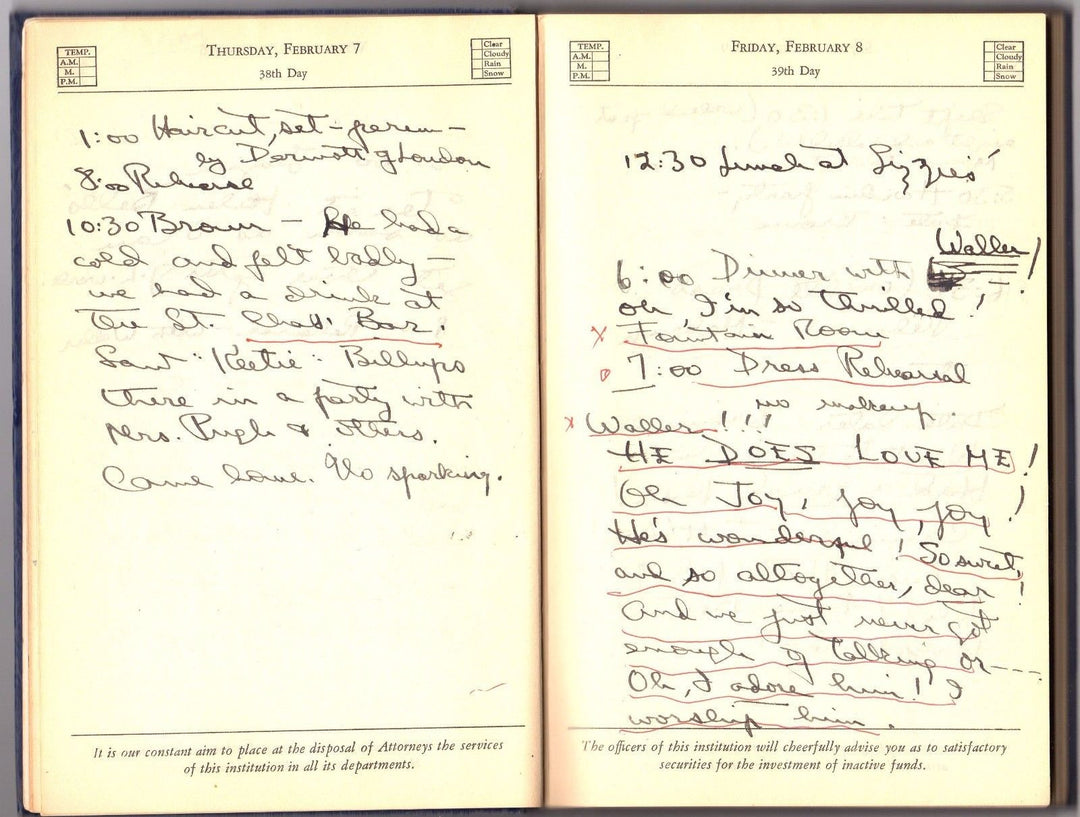 THURSDAY, FEBRUARY 7
38th Day
TEMP.
A.M.
M.
P.M.
Clear
Cloudy
Rain
Snow
1:00 Haircut, set - perm -
by Dermott of London
8:00 Rehearse
10:30 Brown - He had a
cold and felt badly -
we had a drink at
the St. Chas' Bar.
Saw "Keetie" Billups
there in a party with
Mrs. Pugh & others.
Came home. No sparking.
It is our constant aim to place at the disposal of Attorneys the services
of this institution in all its departments.
FRIDAY, FEBRUARY 8
39th Day
TEMP.
A.M.
M.
P.M.
Clear
Cloudy
Rain
Snow
12:30 Lunch at Lizzies'
Waller!
6:00 Dinner with
oh, I'm so thrilled!
x Fountain Room
7:00 Dress Rehearsal
no makeup.
x Waller!!!
HE DOES LOVE ME!
Oh Joy, joy, joy!
He's wonderful! So sweet,
and so altogether, dear!
And we just never got
enough of talking or ---
Oh, I adore him! I
worship him.
The officers of this institution will cheerfully advise you as to satisfactory
securities for the investment of inactive funds.